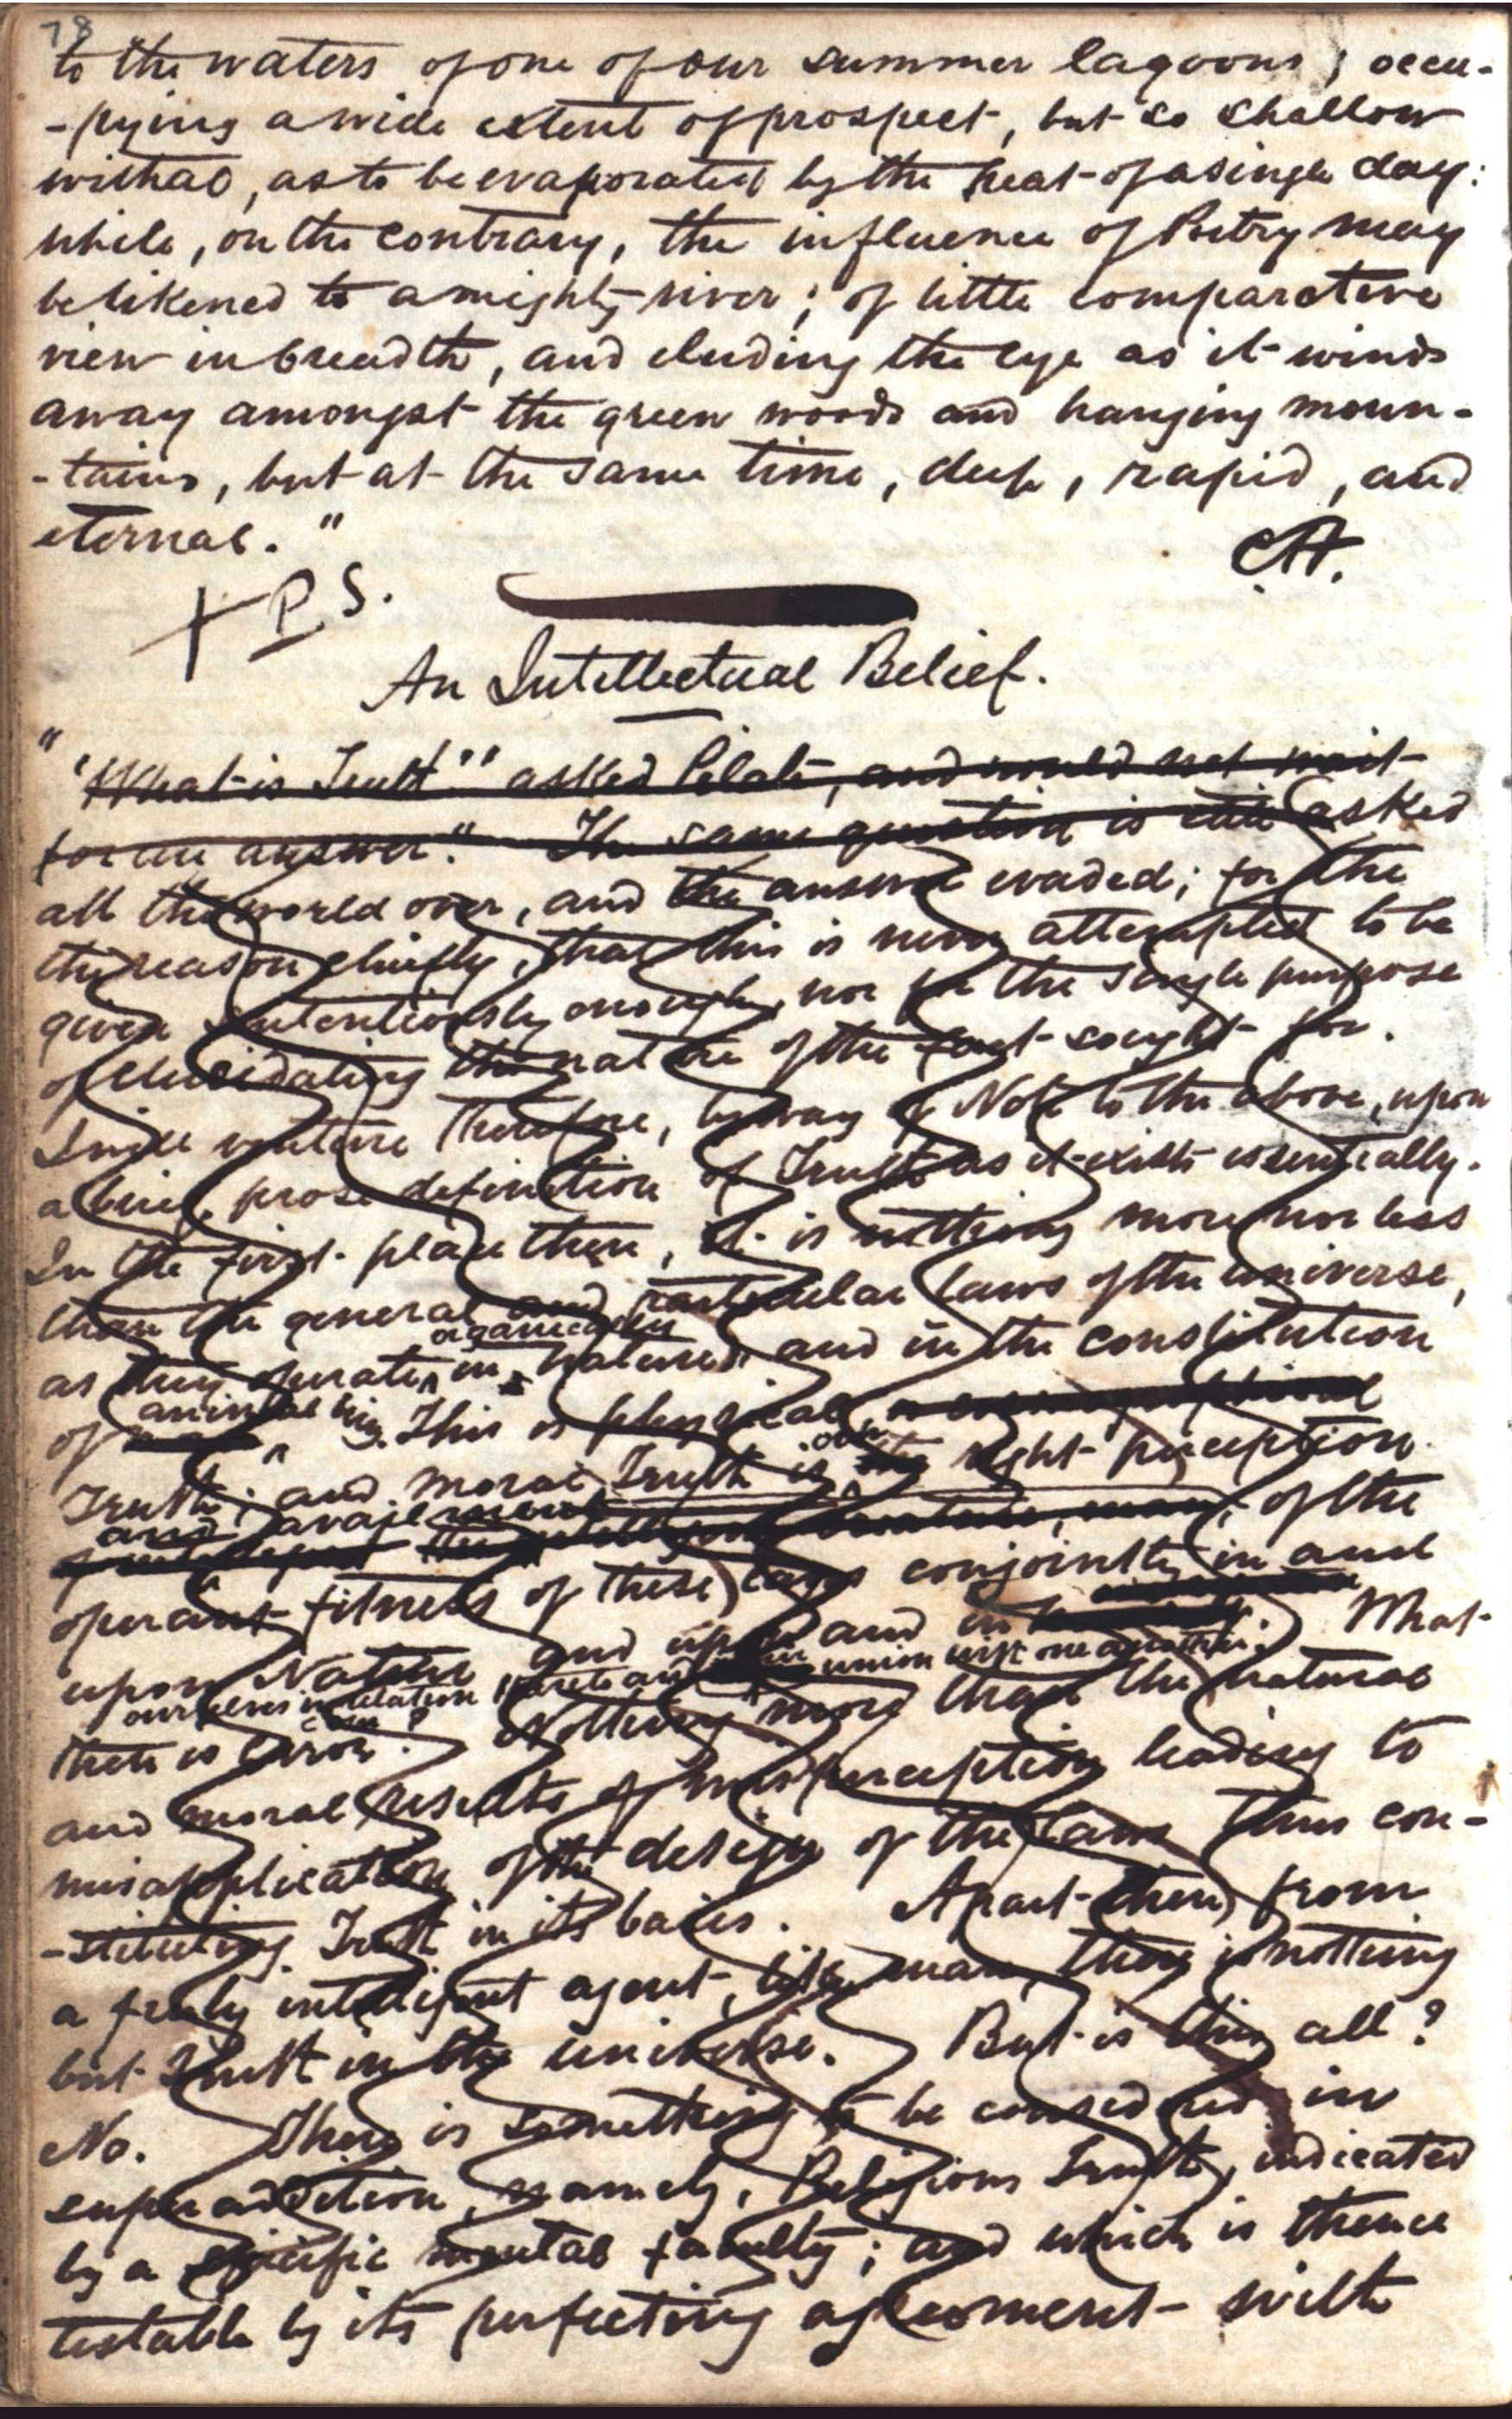 78
to the waters of one of our summer lagoons; occu-
-pying a wide extent of prospect, but so shallow
withal, as to be evaporated by the heat of a single day:
while, on the contrary, the influence of Poetry may
be likened to a mighty river; of little comparative
view in breadth, and eluding the eye as it winds
away amongst the green woods and hanging moun-
-tains, but at the same time, deep, rapid, and
eternal."
C.H.
P.S.
An Intellectual Belief.
" 'What is Truth'' asked Pilate, and would not wait
for an answer." The same question is still asked
all the world over, and the answer evaded; for the
the reason chiefly, that this is never attempted to be
given sententiously enough, nor for the single purpose
of elucidating the nature of the fact sought for.
I will venture therefore, by way of Note to the above, upon
a brief prose definition of Truth as it exists essentially.
In the first place then, it is nothing more nor less
than the general and particular laws of the universe,
organically
as they operate in nature and in the constitution
animal
of This is physical
our
Truth; and moral Truth is right perception
and
of the
operant fitness of these laws conjointly in and
upon Nature and upon and in What
ourselves in relation thereto and in union with one another.
then is Error? Nothing more than the natural
and moral results of misperception leading to
misapplication of the design of the laws thus con-
-stituting Truth in its basis. Apart then from
a freely intelligent agent, like man, there is nothing
but Truth in the universe. But is this all?
No. There is something to be considered in
superaddition, namely, Religious Truth, indicated
by a specific mental faculty; and which is thence
testable by its perfecting agreement with